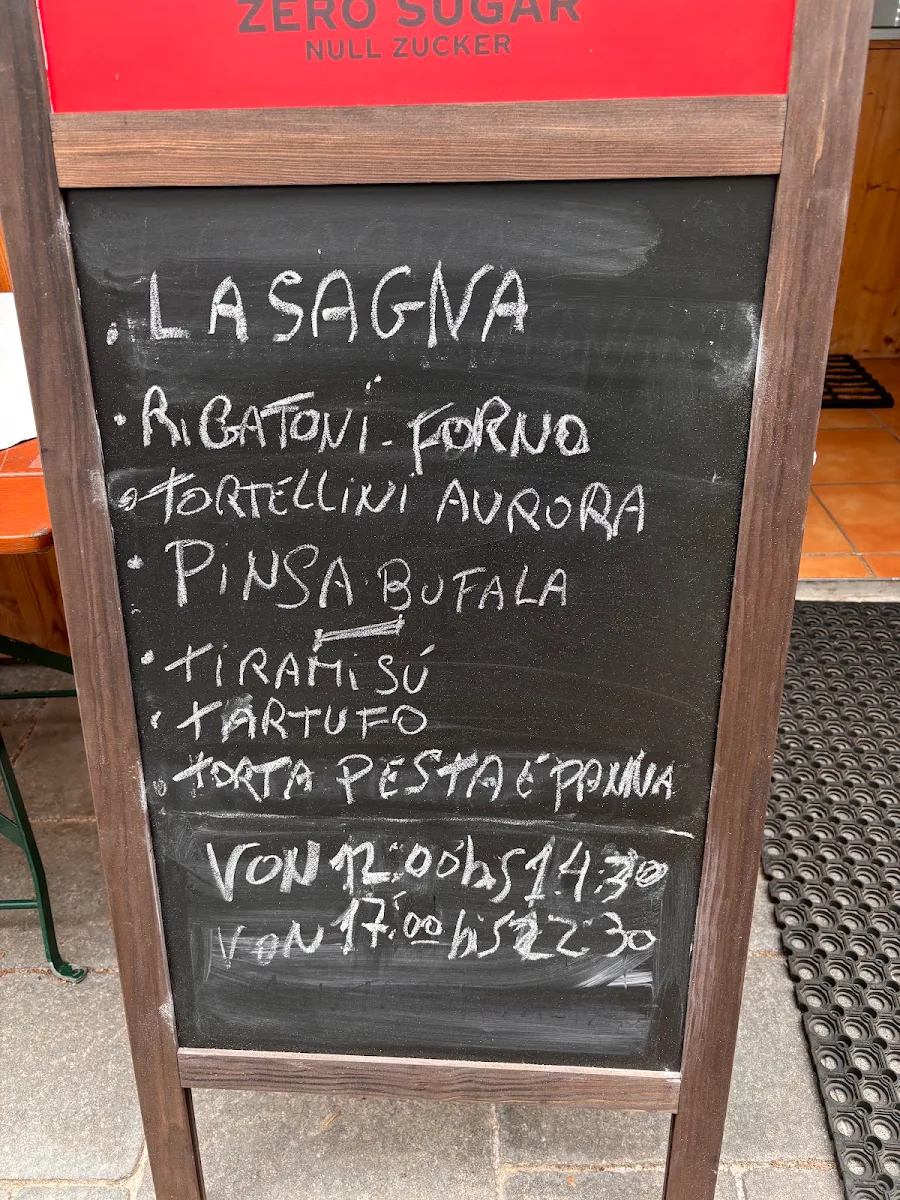 ZERO SUGAR
NULL ZUCKER
• LASAGNA
• RiGATONi - FORNO
• TORTELLiNi AURORA
• PiNSA BUFALA
• TiRAMiSÚ
• TARTUFO
• TORTA PESTA É PANNA
VON 12:00 bis 14:30
VON 17:00 bis 22:30